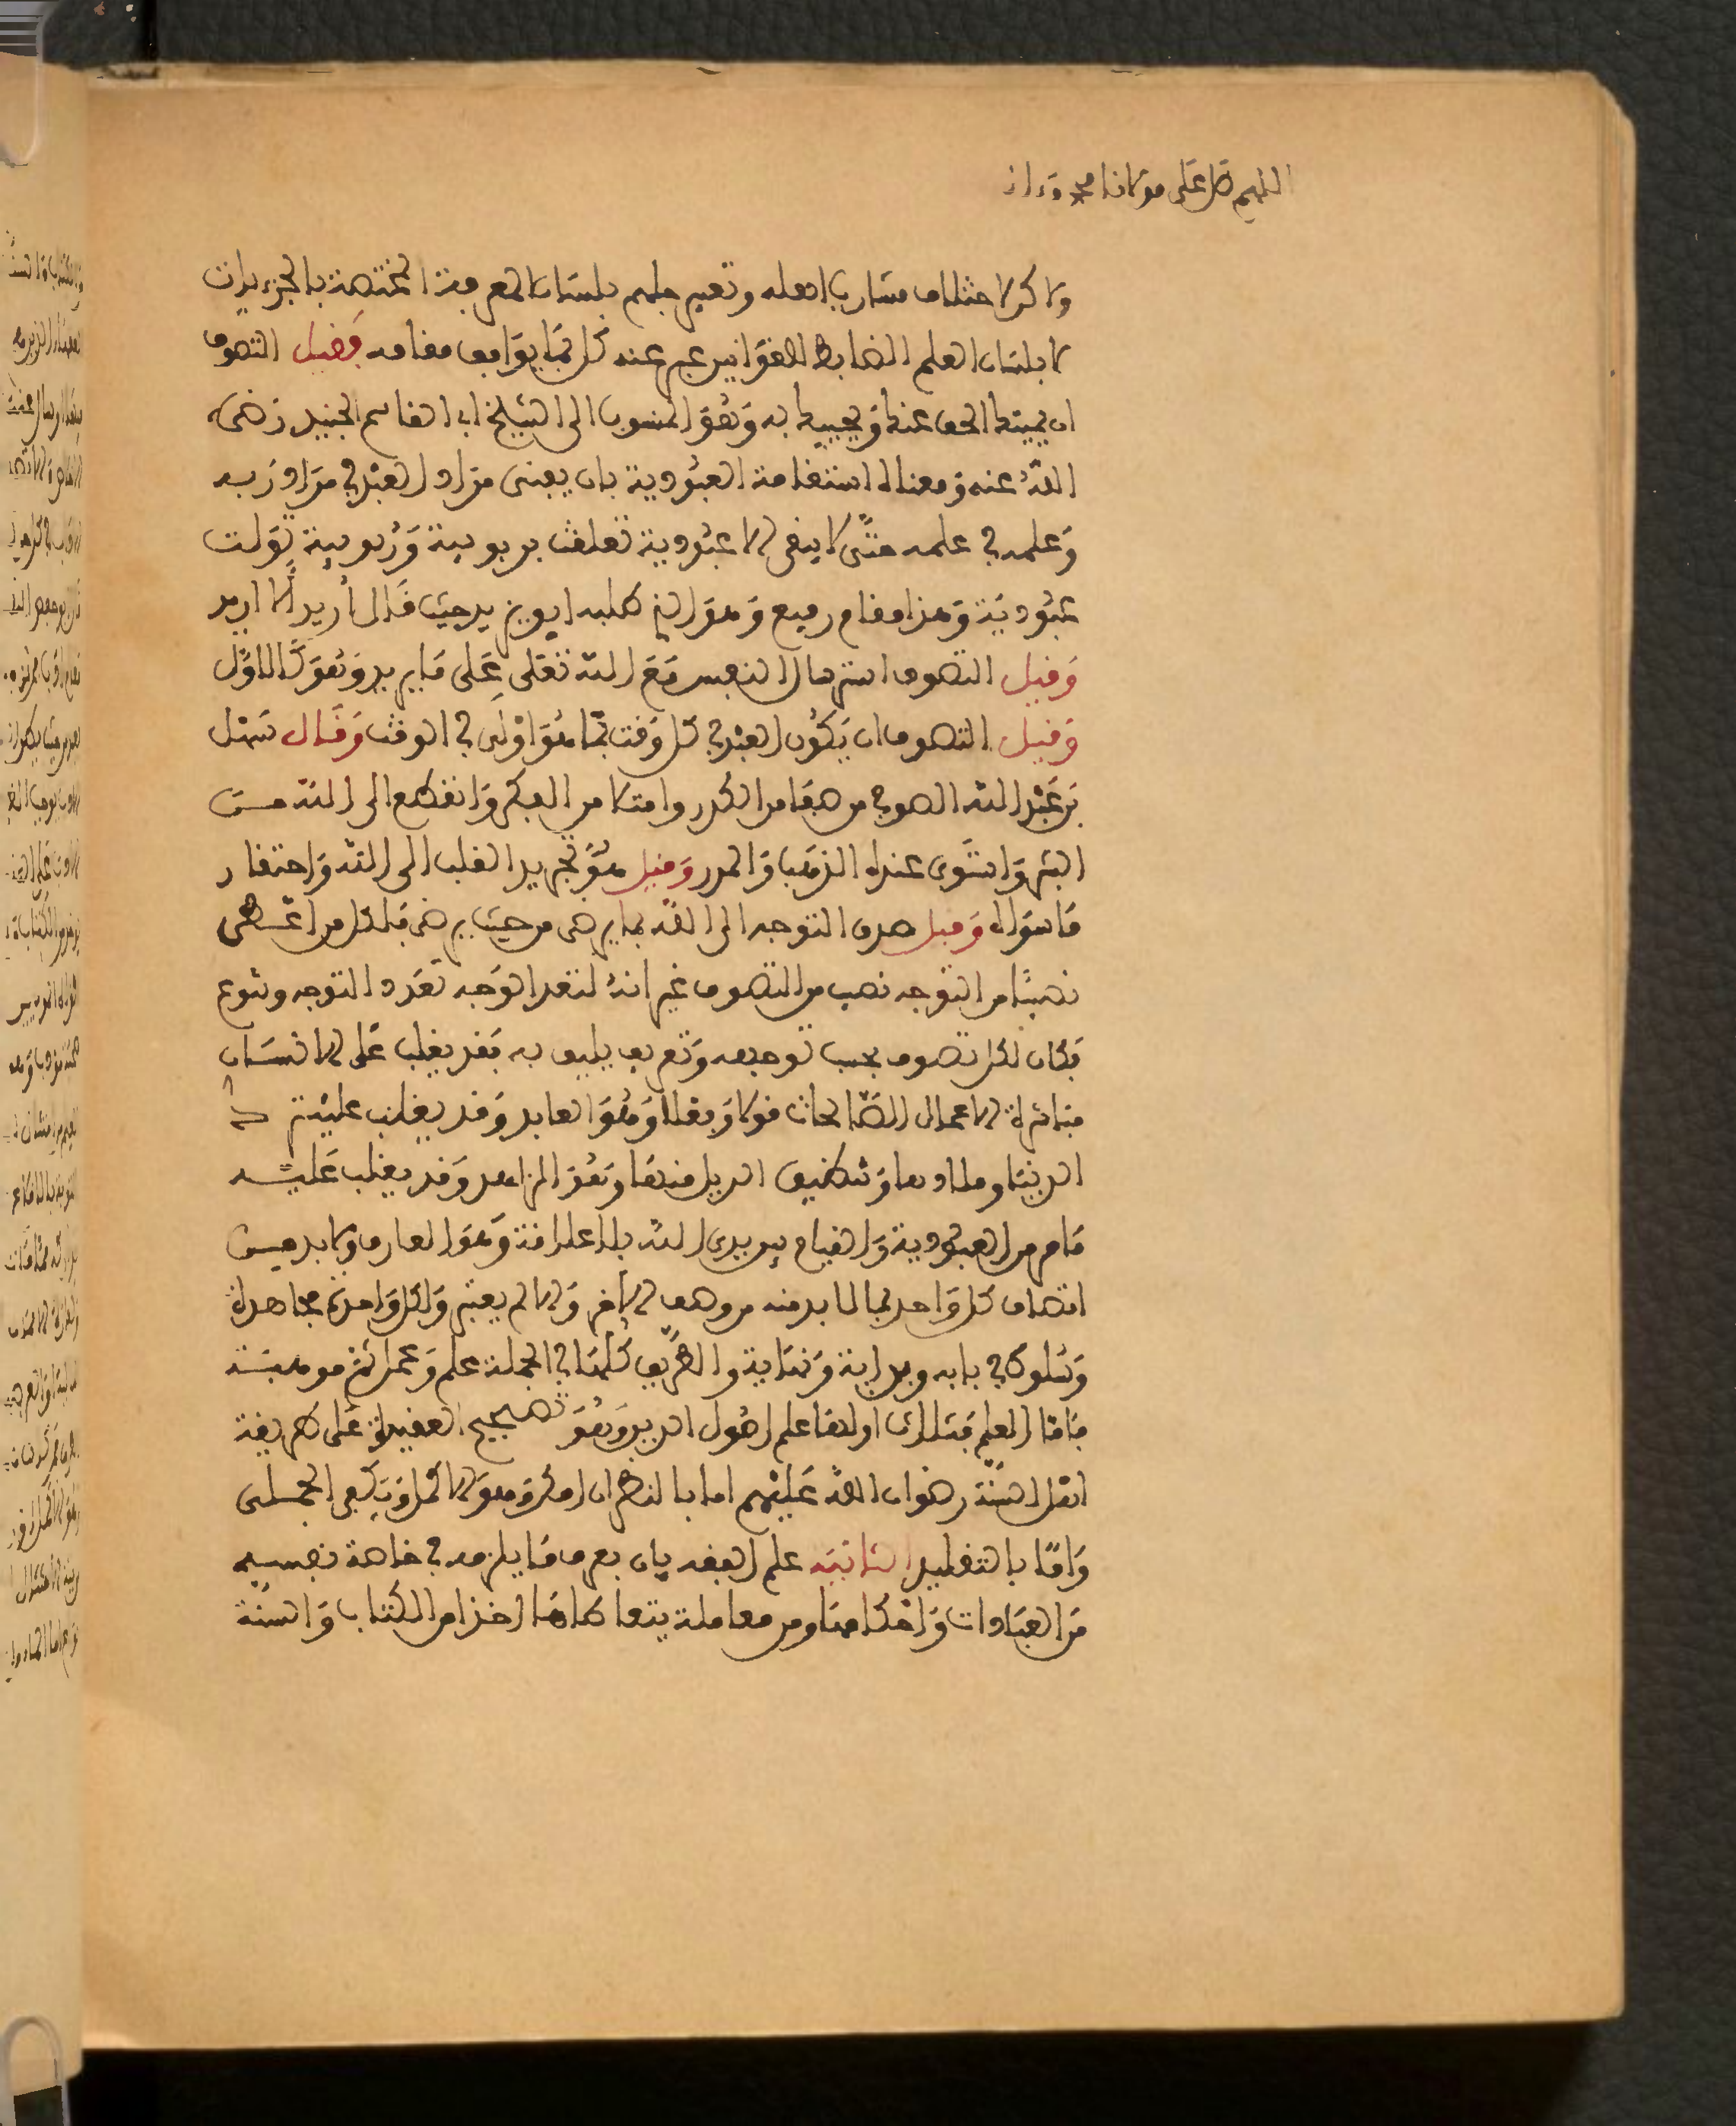 اللهم صل على مولانا محمد وءاله
ولاكن لاختلاف مشارب اهله وتعبير جلهم بلسان المعرفة المختصة بالجزءيات
لا بلسان العلم الضابط للقوانين عبر عنه كل بما يوافق مقامه فقيل التصوف
ان يميتك الحق عنك ويحييك به وهو المنسوب الى الشيخ ابي القاسم الجنيد رضي
الله عنه ومعناه استقامة العبودية بان يفنى مراد العبد في مراد ربه
وعلمه في علمه حتى لا يبقى الا عبودية تعلقت بربوبية وربوبية تولت
عبودية وهذا مقام رفيع وهو الذي طلبه ابو يزيد حيث قال أريد ألا اريد
وقيل التصوف استرسال النفس مع الله تعلى على ما يريد وهو كالاول
وقيل التصوف ان يكون العبد في كل وقت بما هو اولى في الوقت وقال سهل
بن عبد الله الصوفي من صفا من الكدر وامتلا من الفكر وانقطع الى الله من
البشر واستوى عنده الذهب والمدر وقيل هو تجريد القلب الى الله واحتقار
ما سواه وقيل صدق التوجه الى الله بما يرضى من حيث يرضى فلكل من اعطي
نصيبا من التوجه نصيب من التصوف غير انه لتعدد اوجه تعدد التوجه وتنوع
فكان لكل تصوف بحسب توجهه وتعريف يليق به فقد يغلب على الانسان
مباشرة الاعمال الصالحات قولا وفعلا وهو العابد وقد يغلب عليه ترك
الدنيا وملاذها وتنظيف اليد منها وهو الزاهد وقد يغلب عليه
مامر من العبودية والقيام بين يدي الله بلا علاقة وهو العارف ولا بد من
اتصاف كل واحد بما لا بد منه من وصف الاخر والا لم يعتبر ولكل واحد مجاهدة
وسلوك في بابه وبداية ونهاية والطريق كلها في الجملة علم وعمل ثم موهبة
فاما العلم فثلاث اولها علم اصول الدين وهو تصحيح العقيدة على طريقة
اهل السنة رضوان الله عليهم اما بالنظر ان امكن وهو الاكمل ويكفي الجملي
واما بالتقليد الثانية علم الفقه بان يعرف ما يلزمه في خاصة نفسه
من العبادات واحكامها ومن معاملة يتعاطاها اخذا من الكتاب والسنة